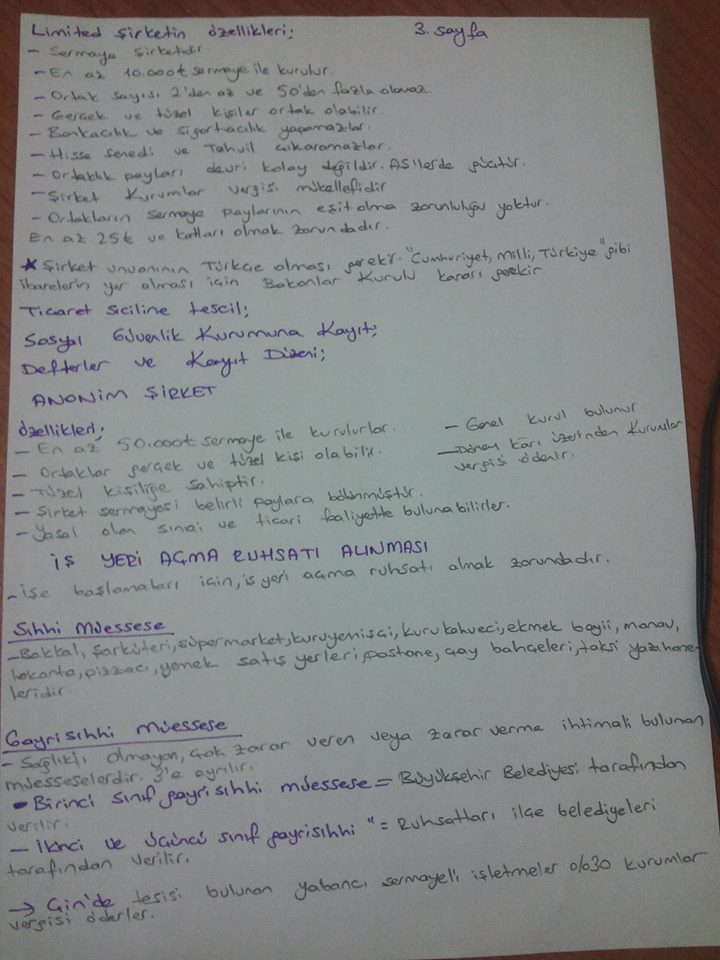 Limited Şirketin özellikleri;
3. sayfa
- Sermaye şirketidir
- En az 10.000₺ sermaye ile kurulur.
- Ortak sayısı 2'den az ve 50'den fazla olamaz.
- Gerçek ve tüzel kişiler ortak olabilir.
- Bankacılık ve sigortacılık yapamazlar.
- Hisse senedi ve Tahvil çıkaramazlar.
- Ortaklık payları devri kolay değildir. AŞ'lerde güçtür.
- Şirket Kurumlar vergisi mükellefidir
- Ortakların sermaye paylarının eşit olma zorunluğu yoktur.
En az 25₺ ve katları olmak zorundadır.
★ Şirket unvanının Türkçe olması gerekir. "Cumhuriyet, Milli, Türkiye" gibi
ibarelerin yer alması için Bakanlar Kurulu kararı gerekir.
Ticaret Siciline tescil;
Sosyal Güvenlik Kurumuna Kayıt;
Defterler ve Kayıt Düzeni;
ANONİM ŞİRKET
Özellikleri;
- En az 50.000₺ sermaye ile kurulurlar.
- Ortaklar gerçek ve tüzel kişi olabilir.
- Tüzel kişiliğe sahiptir.
- Şirket sermayesi belirli paylara bölünmüştür.
- Yasal olan sınai ve ticari faliyette bulunabilirler.
- Genel kurul bulunur
- Dönem kârı üzerinden Kurumlar
vergisi ödenir.
İŞ YERİ AÇMA RUHSATI ALINMASI
- İşe başlamaları için, iş yeri açma ruhsatı almak zorundadır.
Sıhhi Müessese
- Bakkal, Şarküteri, süpermarket, kuruyemişçi, kuru kahveci, ekmek bayii, manav,
lokanta, pizzacı, yemek satış yerleri, pastane, çay bahçeleri, taksi yazıhane-
leridir.
Gayrisıhhi Müessese
- Sağlıklı olmayan, çok zarar veren veya zarar verme ihtimali bulunan
müesseselerdir. 3'e ayrılır.
• Birinci sınıf gayrisıhhi müessese = Büyükşehir Belediyesi tarafından
verilir.
- İkinci ve üçüncü sınıf gayrisıhhi " = Ruhsatları ilçe belediyeleri
tarafından verilir.
→ Çin'de tesisi bulunan yabancı sermayeli işletmeler %30 kurumlar
vergisi öderler.